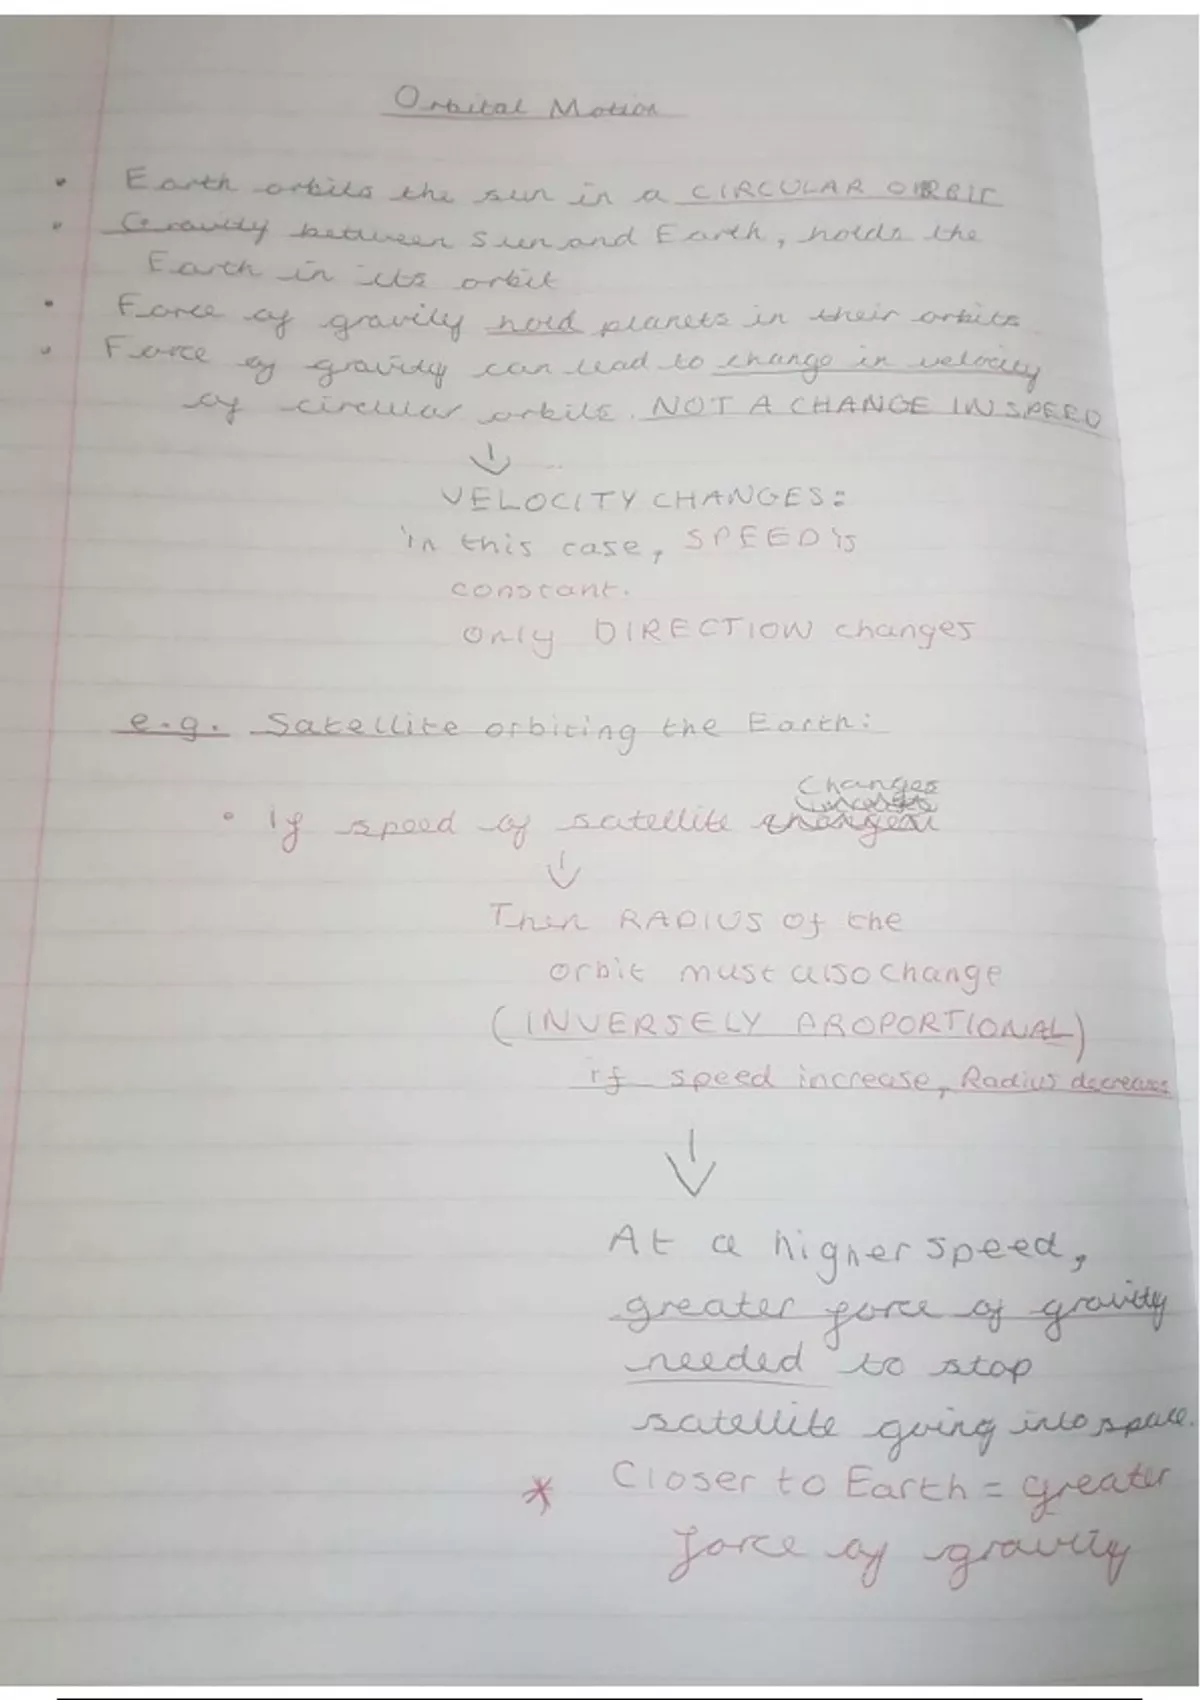 Orbital Motion
• Earth orbits the sun in a CIRCULAR ORBIT
• Gravity between Sun and Earth, holds the
Earth in its orbit
• Force of gravity hold planets in their orbits
• Force of gravity can lead to change in velocity
of circular orbits. NOT A CHANGE IN SPEED
↓
VELOCITY CHANGES:
in this case, SPEED is
constant.
only DIRECTION changes
e.g. Satellite orbiting the Earth:
changes
• If speed of satellite
↓
Then RADIUS of the
orbit must also change
(INVERSELY AROPORTIONAL)
if speed increase, Radius decreases
↓
At a higher speed,
greater force of gravity
needed to stop
satellite going into space.
* Closer to Earth = greater
force of gravity